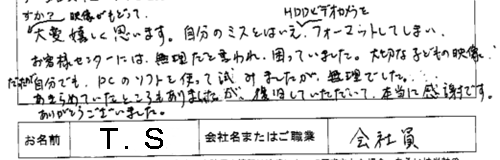 すか？ 映像がもどって、
大変嬉しく思います。自分のミスとはいえ、HDDビデオカメラをフォーマットしてしまい、
お客様センターには、無理だと言われ、困っていました。大切な子どもの映像…
だったので自分でも、PCのソフトを使って試みましたが、無理でした…
あきらめていたところもありましたが、復旧していただいて、本当に感謝です。
ありがとうございました。
お名前 T.S 会社名またはご職業 会社員